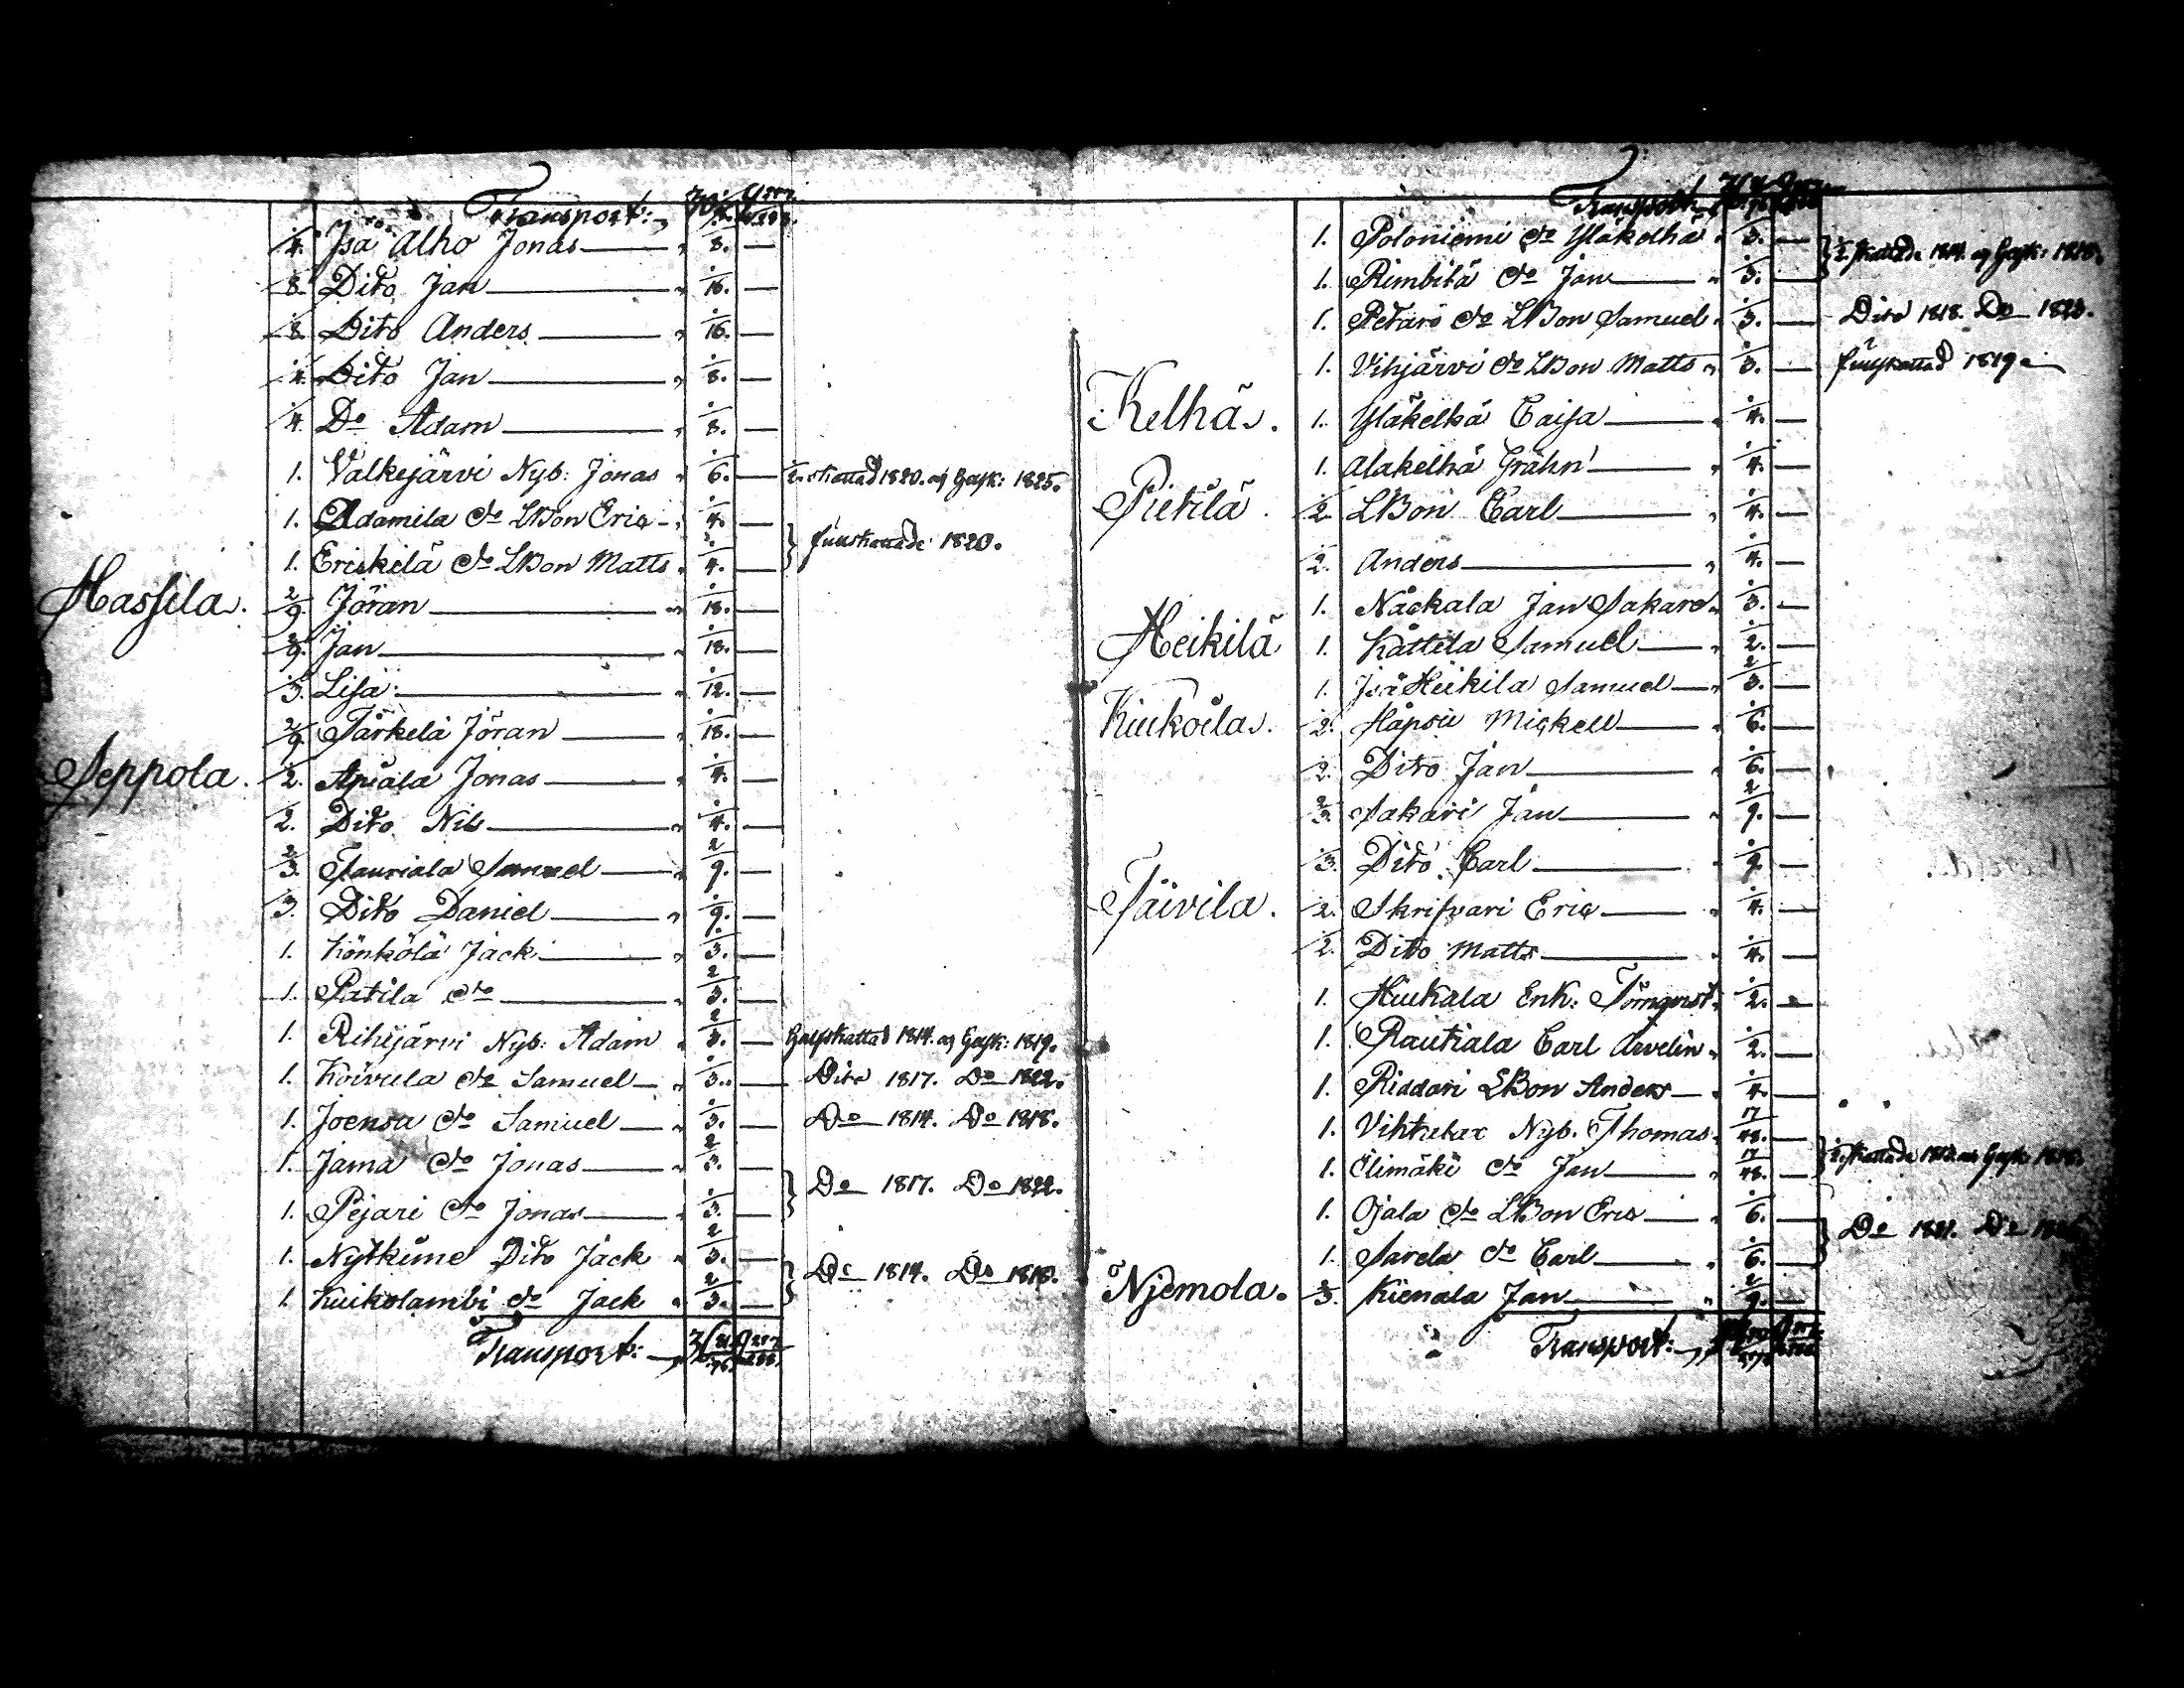 Transport:
1/4. Isä Alho Jonas — " 1/8. —
1/8. Dito Jan — " 1/16. —
1/8. Dito Anders — " 1/16. —
1/4. Dito Jan — " 1/8. —
1/4. Do Adam — " 1/8. —
1. Valkejärvi Nyb: Jonas " 1/6. — 1/2 skattad 1820. och Helsk: 1825.
1. Adamila do LBon Eric — " 1/4. —
1. Eriskilä do LBon Matts " 1/4. — } fullskattade 1820.
Hassila. 2/9. Jöran — " 1/18. —
2/9. Jan — " 1/18. —
1/3. Lisa: — " 1/12. —
2/9. Pärkelä Jöran — " 1/18. —
Seppola. 1/2. Apiala Jonas — " 1/4. —
1/2. Dito Nils — " 1/4. —
2/3. Tauriala Samuel — " 2/9. —
1/3. Dito Daniel — " 1/9. —
1. Könkölä Jack — " 1/3. —
1. Patila do — " 2/3. —
1. Rihijärvi Nyb: Adam " 2/3. — Halfskattad 1814. och Helsk: 1819.
1. Koivula do Samuel — " 1/3. — Dito 1817. Do 1822.
1. Joensa do Samuel — " 1/3. — Do 1814. Do 1818.
1. Jama do Jonas — " 2/3. —
1. Pejari do Jonas — " 1/3. — } Do 1817. Do 1822.
1. Nytkime Dito Jack " 2/3. —
1. Kuikolambi do Jack " 2/3. — } Do 1814. Do 1818.
Transport:
Transport
1. Poloniemi do Yläkelhä " 1/3. —
1. Rimbilä do Jan — " 1/3. — } 1/2 skattade 1814. och Helsk: 1818.
1. Petäri do LBon Samuel " 1/3. — Dito 1818. Do 1823.
1. Vihjärvi do LBon Matts " 1/3. — fullskattad 1819
Kelhä. 1. Yläkelhä Caisa — " 1/4. —
1. Alakelhä Grähn — " 1/4. —
Pietilä. 1/2 LBon Carl — " 1/4. —
1/2. Anders — " 1/4. —
1. Näckala Jan Sakars " 1/3. —
Heikilä 1. Kättila Samuel — " 1/2. —
1. Isä Heikila Samuel — " 2/3. —
Kiukoila. 1/2. Häpsü Mickell — " 1/6. —
1/2. Dito Jan — " 1/6. —
2/3. Sakari Jan — " 2/9. —
1/3. Dito Carl — " 1/9. —
Päivila. 1/2. Skrifvari Eric — " 1/4. —
1/2. Dito Matts — " 1/4. —
1. Huikala Enk: Törnqvist " 1/2. —
1. Rautiala Carl Arvelin " 1/2. —
1. Riddari LBon Anders — " 1/4. —
1. Nyb. Thomas " 17/48. —
1. Elimäki do Jan — " 17/48. —
1. Ojala do LBon Eric — " 1/6. —
1. Sarela do Carl — " 1/6. — } Do 1821. Do
Njemola. 2/3. Kienala Jan — " 2/9. —
Transport: